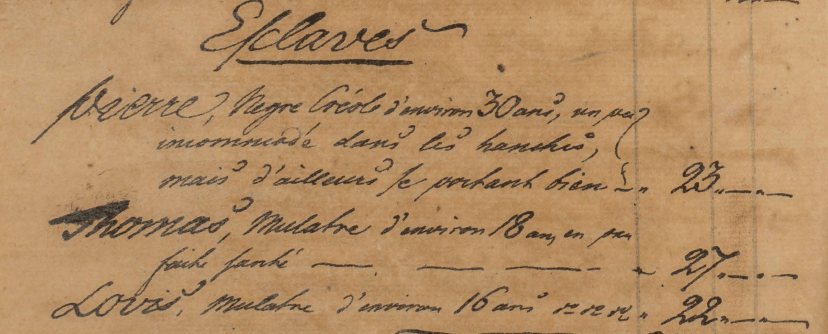 Esclaves
Pierre, Negre Créole d'environ 30 ans, un peu
incommodé dans les hanches,
mais d'ailleurs se portant bien " 23 " — " —
Thomas, Mulatre d'environ 18 ans, en par
faite santé — . — — — " 27 " — " —
Lovis, Mulatre d'environ 16 ans " 22 " — " —